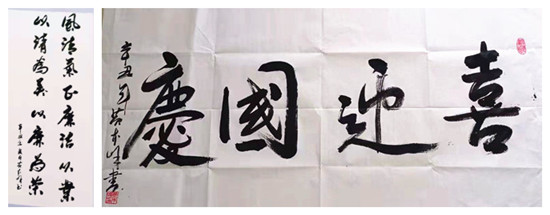 風清氣正廉洁从業
以清為美以廉為榮
喜迎國慶
辛丑年